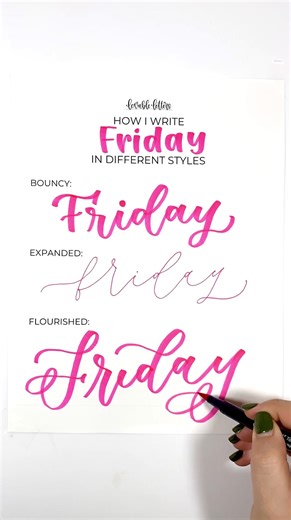 lovable.letters
HOW I WRITE
Friday
IN DIFFERENT STYLES
BOUNCY:
Friday
EXPANDED:
friday
FLOURISHED:
Friday